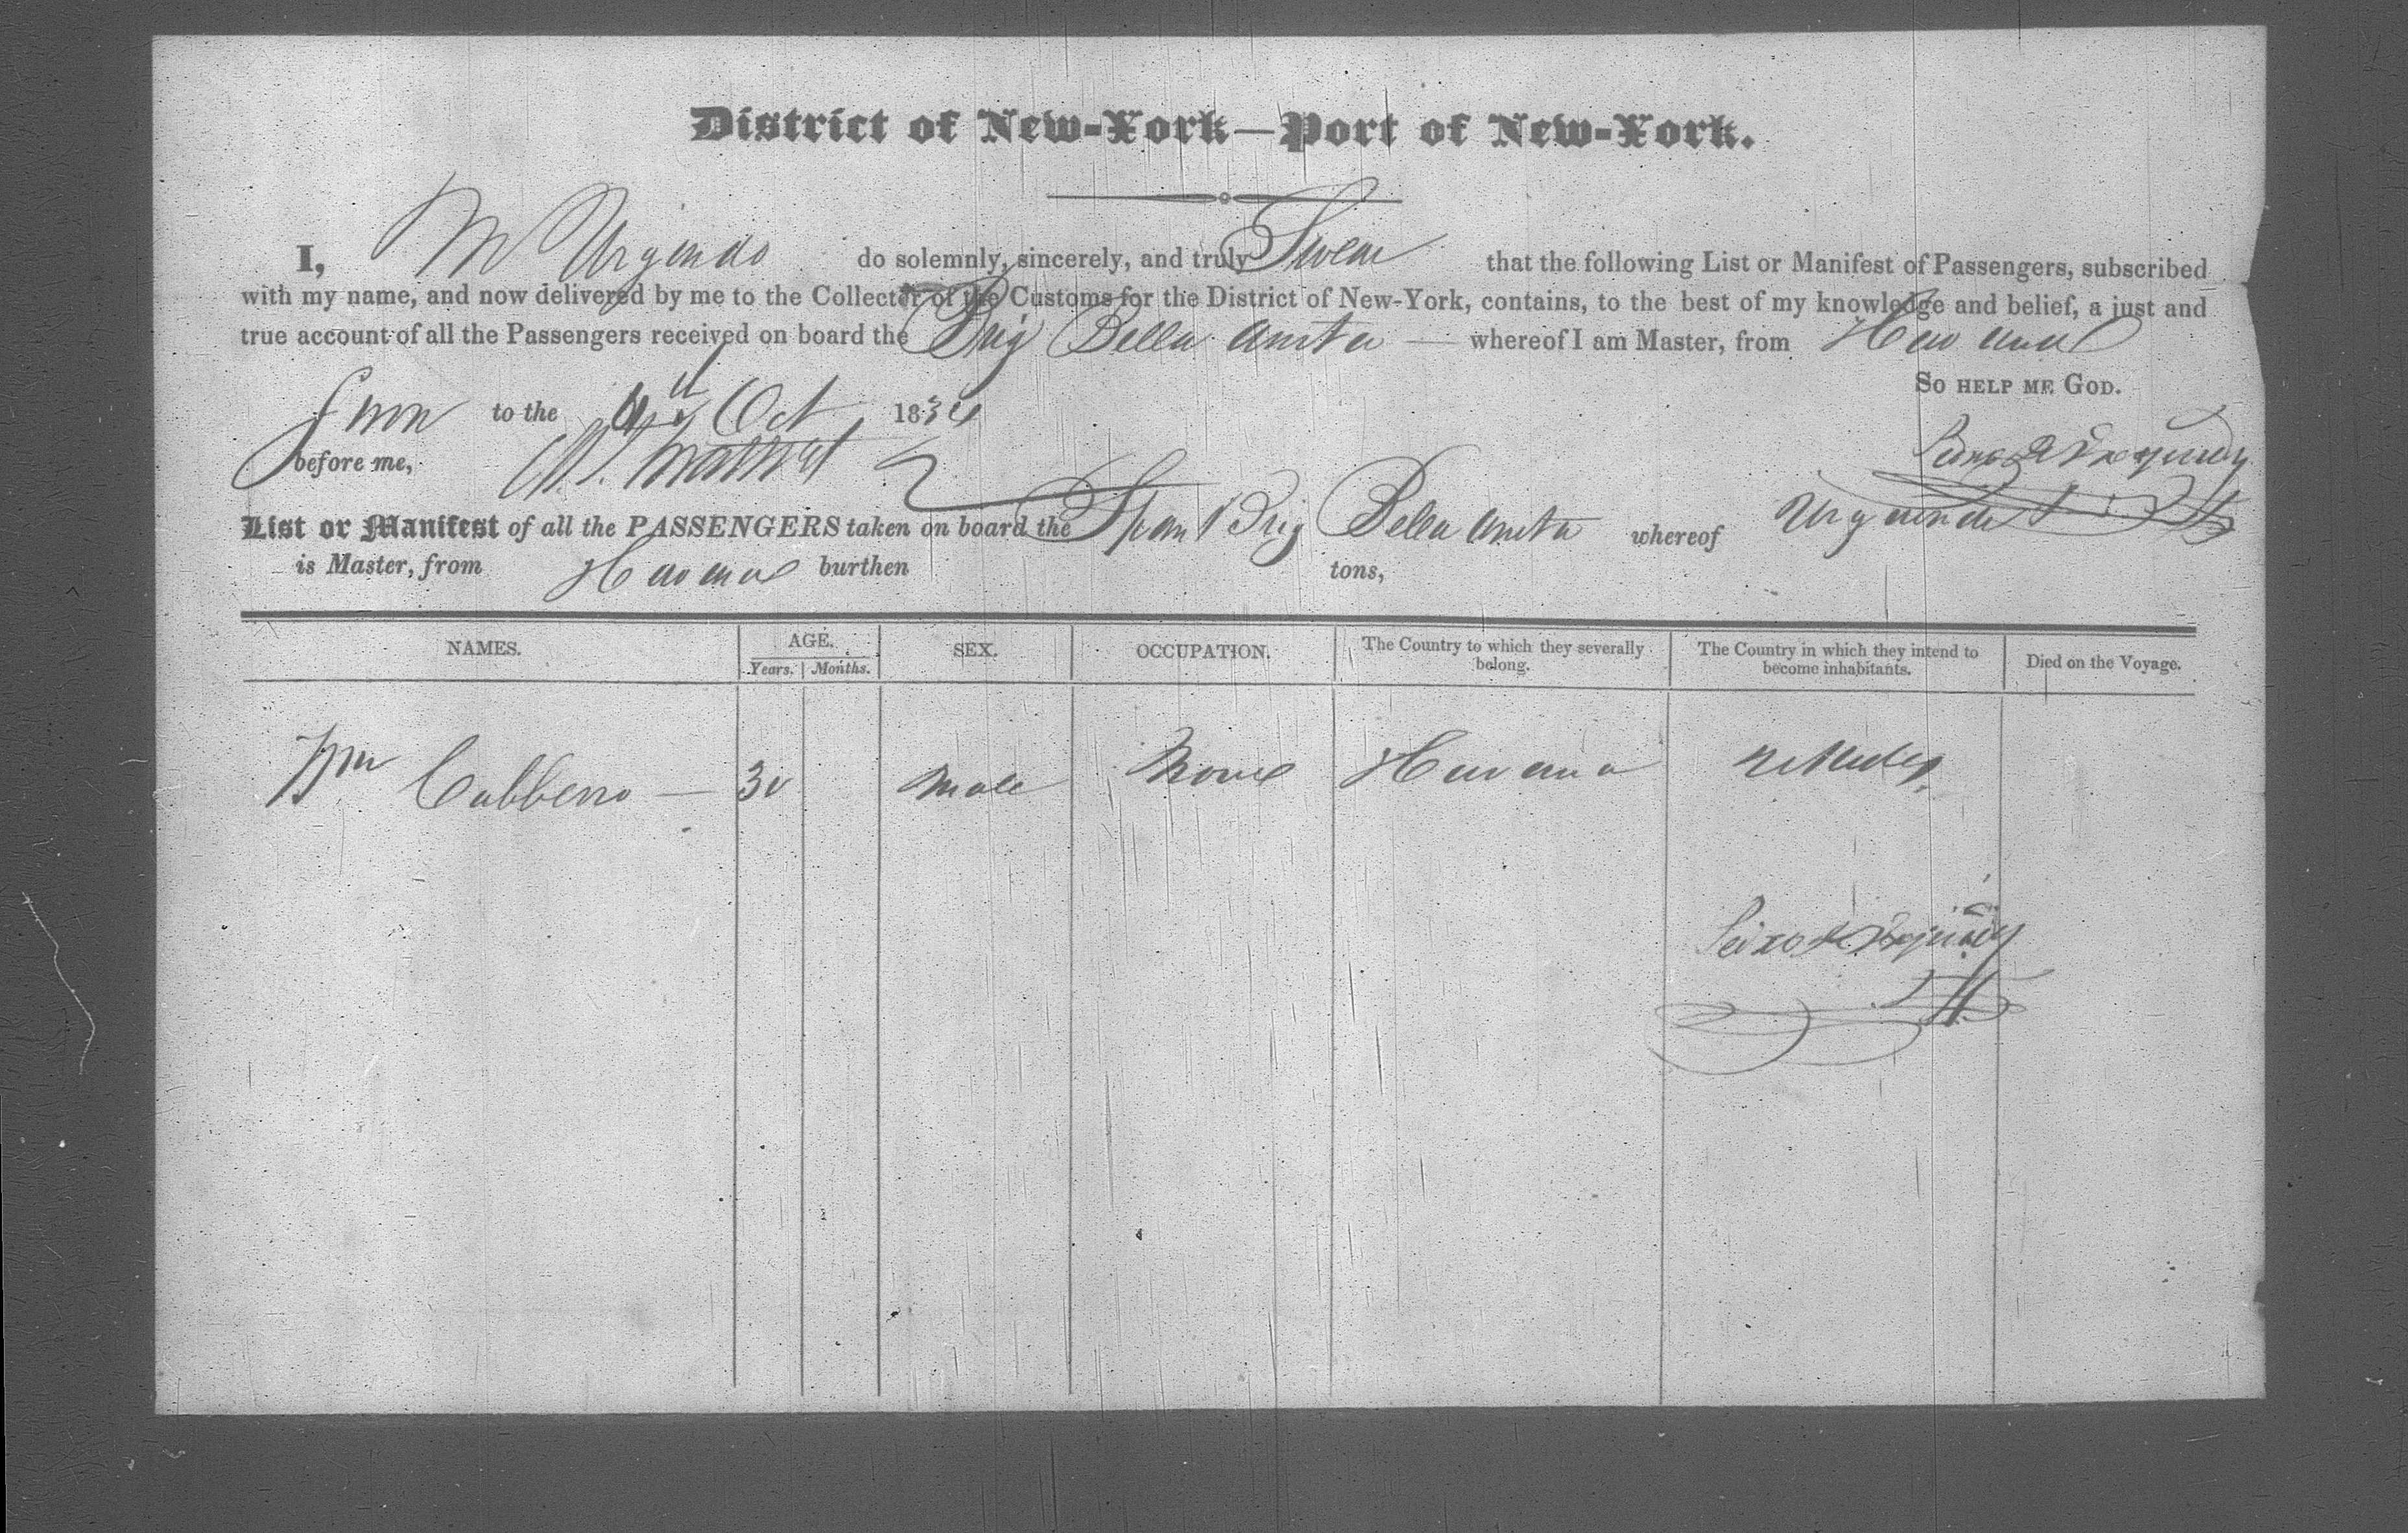 District of New-York—Port of New-York.
I, M Urgendo do solemnly, sincerely, and truly Swear that the following List or Manifest of Passengers, subscribed
with my name, and now delivered by me to the Collector of the Customs for the District of New-York, contains, to the best of my knowledge and belief, a just and
true account of all the Passengers received on board the Brig Bella Anita — whereof I am Master, from Havana
SO HELP ME GOD.
Sworn to the Oct 183
before me,
List or Manifest of all the PASSENGERS taken on board the Span Brig Bella Anita whereof
is Master, from Havana burthen tons,
NAMES. AGE. SEX. OCCUPATION. The Country to which they severally belong. The Country in which they intend to become inhabitants. Died on the Voyage.
Years. Months.
Wm Cabberro — 30 Male None Havana U States